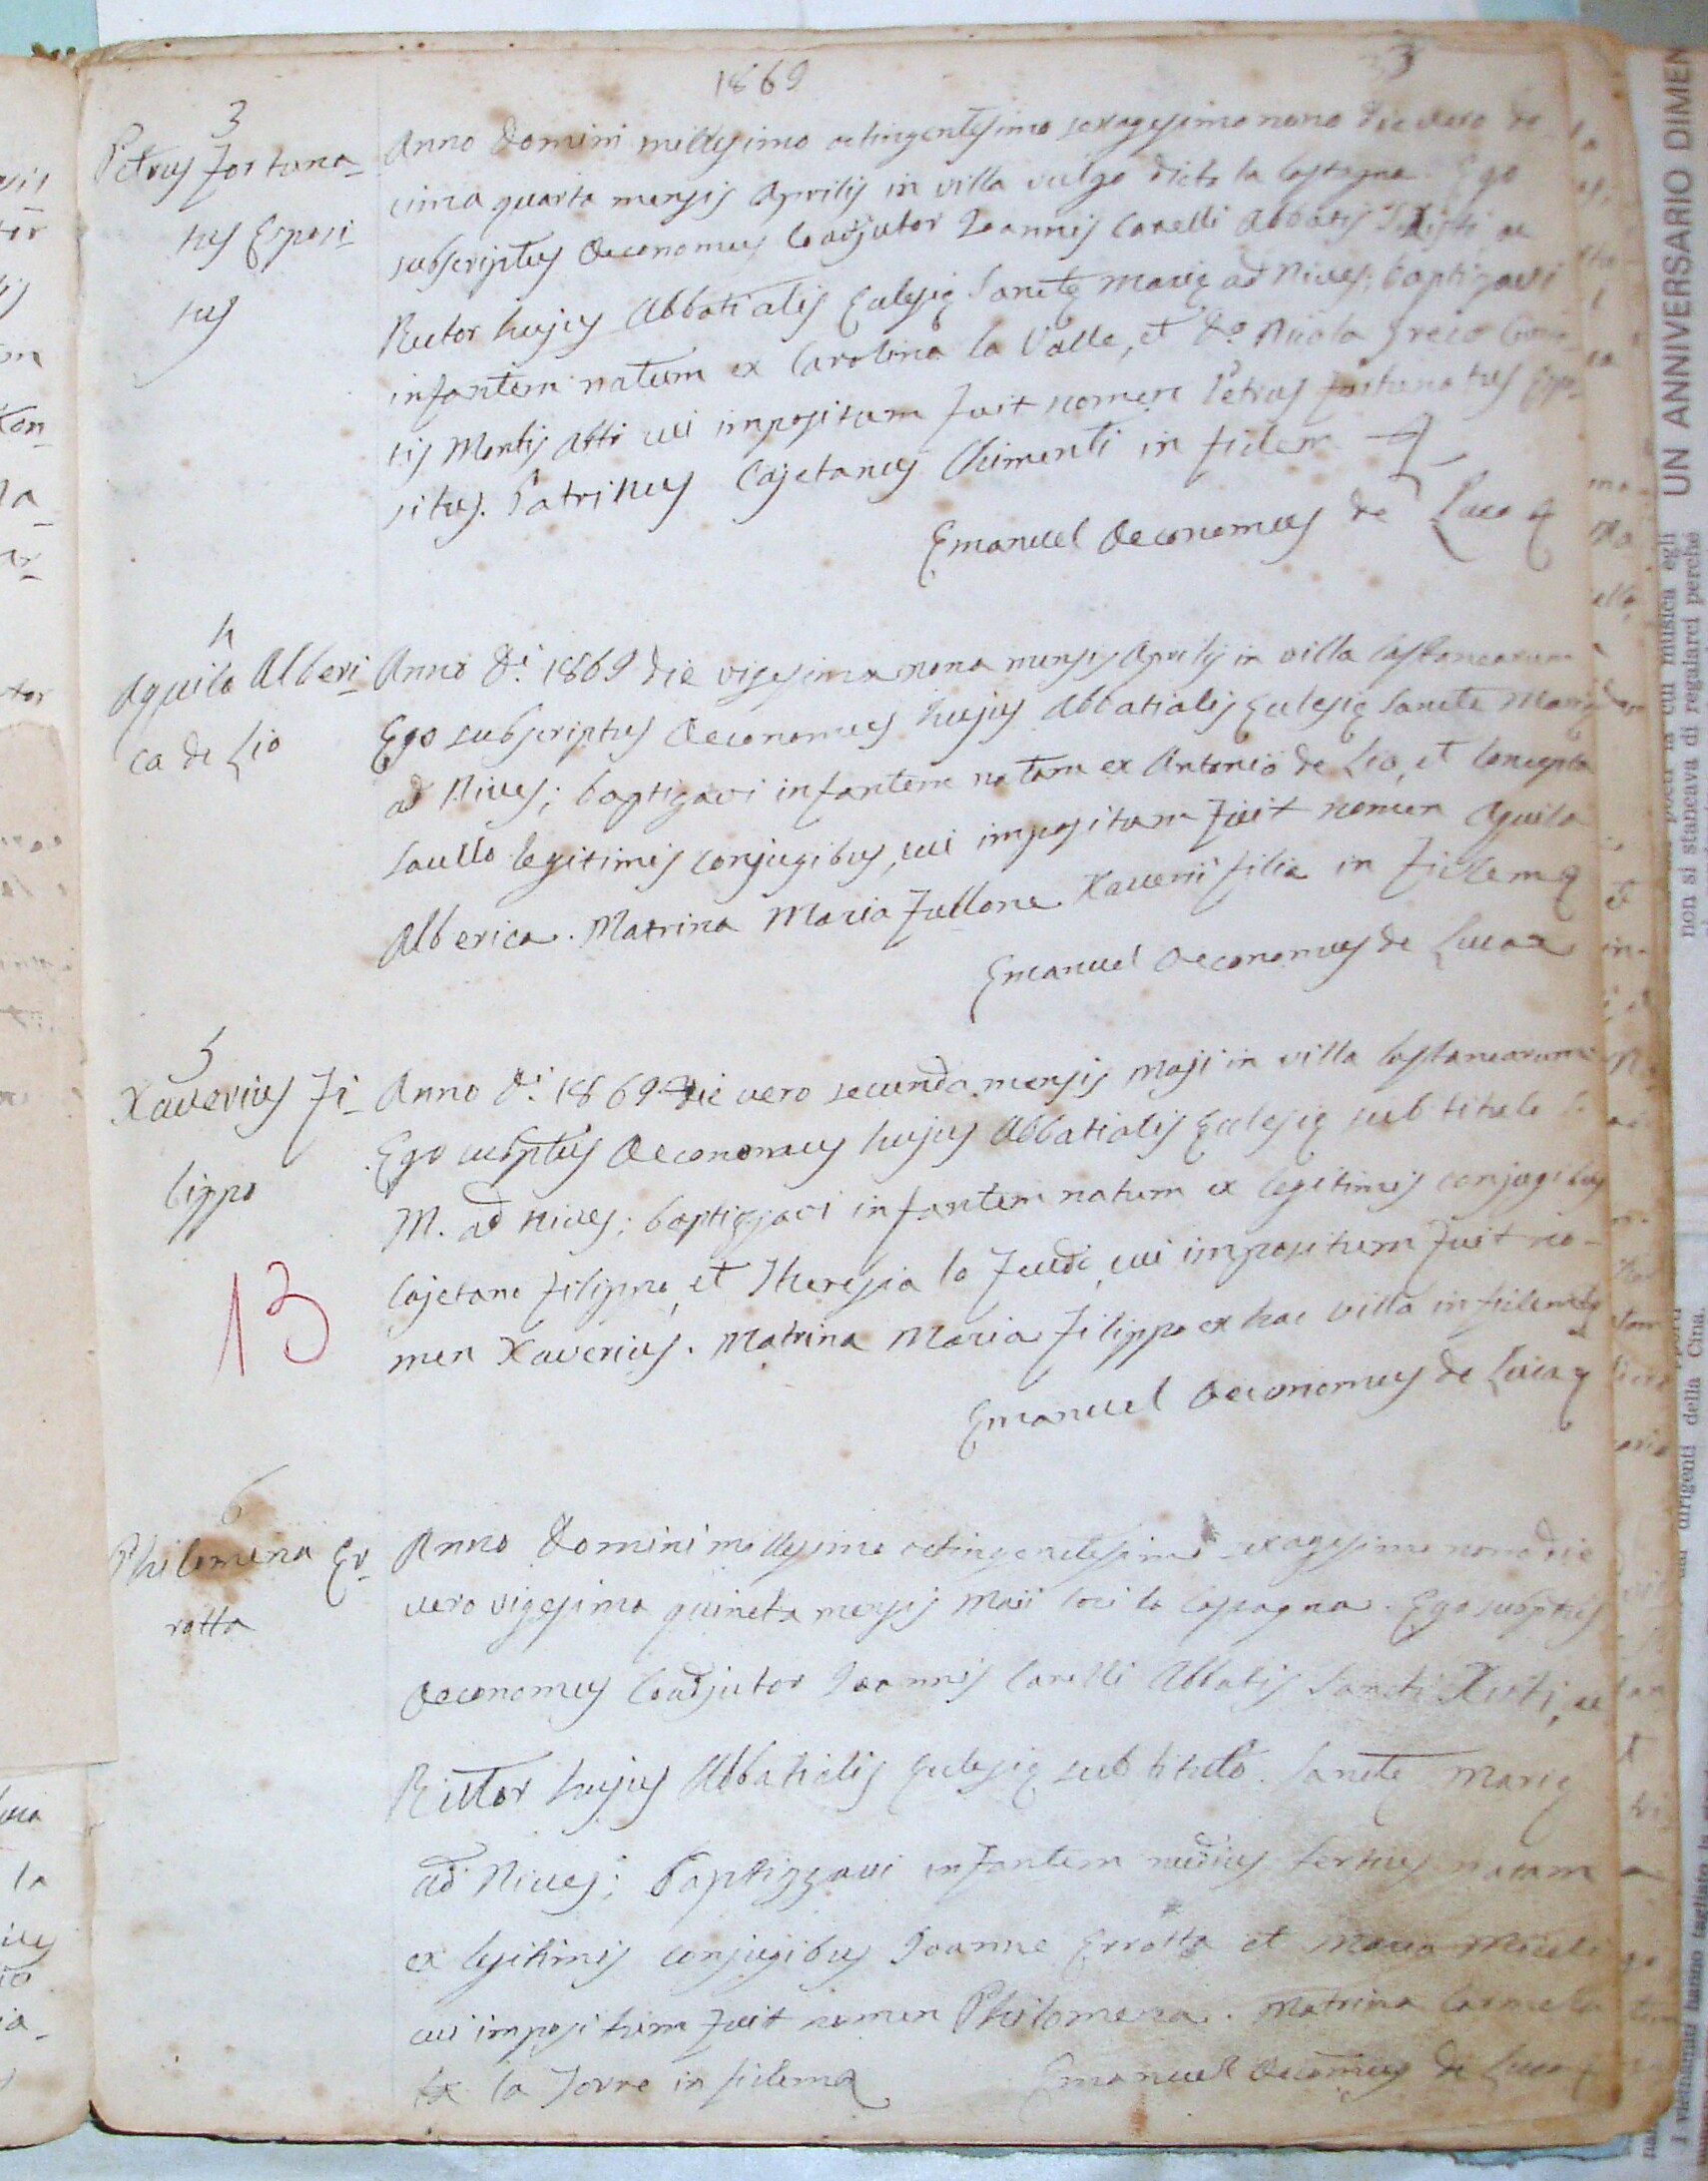 1869
3
3
Petrus Fortuna-
tus Esposi-
tus
Anno Domini millesimo octingentesimo sexagesimo nono die vero de
cima quarta mensis Aprilis in villa vulgo dicta la Castagna. Ego
subscriptus Oeconomus Coadjutor Joannis Carelli Abbatis S. Xisti ac
Rector hujus Abbatialis Eclesię Sanctę Marię ad Nives; baptizavi
infantem natum ex Carolina la Valle, et D.o Nicola Greco
tis Montis Alti cui impositum fuit nomen Petrus Fortunatus Espo-
situs. Patrinus Cajetanus Chimenti in fidem
Emanuel Oeconomus de Luca
4
Aquila Alberi-
ca de Lio
Anno D.i 1869 die vigesima nona mensis Aprilis in villa Castanearum
Ego subscriptus Oeconomus hujus Abbatialis Eclesię Sancte Marię
ad Nives; baptizavi infantem natam ex Antonio de Lio, et Concepta
Saullo legitimis conjugibus, cui impositum fuit nomen Aquila
Alberica. Matrina Maria Fullone Xaverii filia in fidem
Emanuel Oeconomus de Luca
5
Xaverius Fi-
lippo
13
Anno D.i 1869 die vero secunda mensis Maji in villa Castanearum
Ego subptus Oeconomus hujus Abbatialis Eclesię sub titulo S.
M. ad Nives; baptizzavi infantem natum ex legitimis conjugibus
Cajetano Filippo, et Theresia lo Feudo, cui impositum fuit no-
men Xaverius. Matrina Maria Filippo ex hac villa in fidem
Emanuel Oeconomus de Luca
6
Philomena Er-
rotta
Anno Domini millesimo octingentesimo sexagesimo nono die
vero vigesima quincta mensis Maii loci la Castagna. Ego subptus
Oeconomus Coadjutor Joannis Carelli Abbatis Sancti Xisti, ac
Rittor hujus Abbatialis Eclesię sub titulo Sanctę Marię
ad Nives; Baptizzavi infantem nudius tertius natam
ex legitimis conjugibus Joanne Errotta et Maria Miceli
cui impositum fuit nomen Philomena. Matrina Carmela
la Torre in fidem
Emanuel Oeconomus de Luca
UN ANNIVERSARIO DIMEN
non si stancava di regalarci perché
dirigenti della Cina.